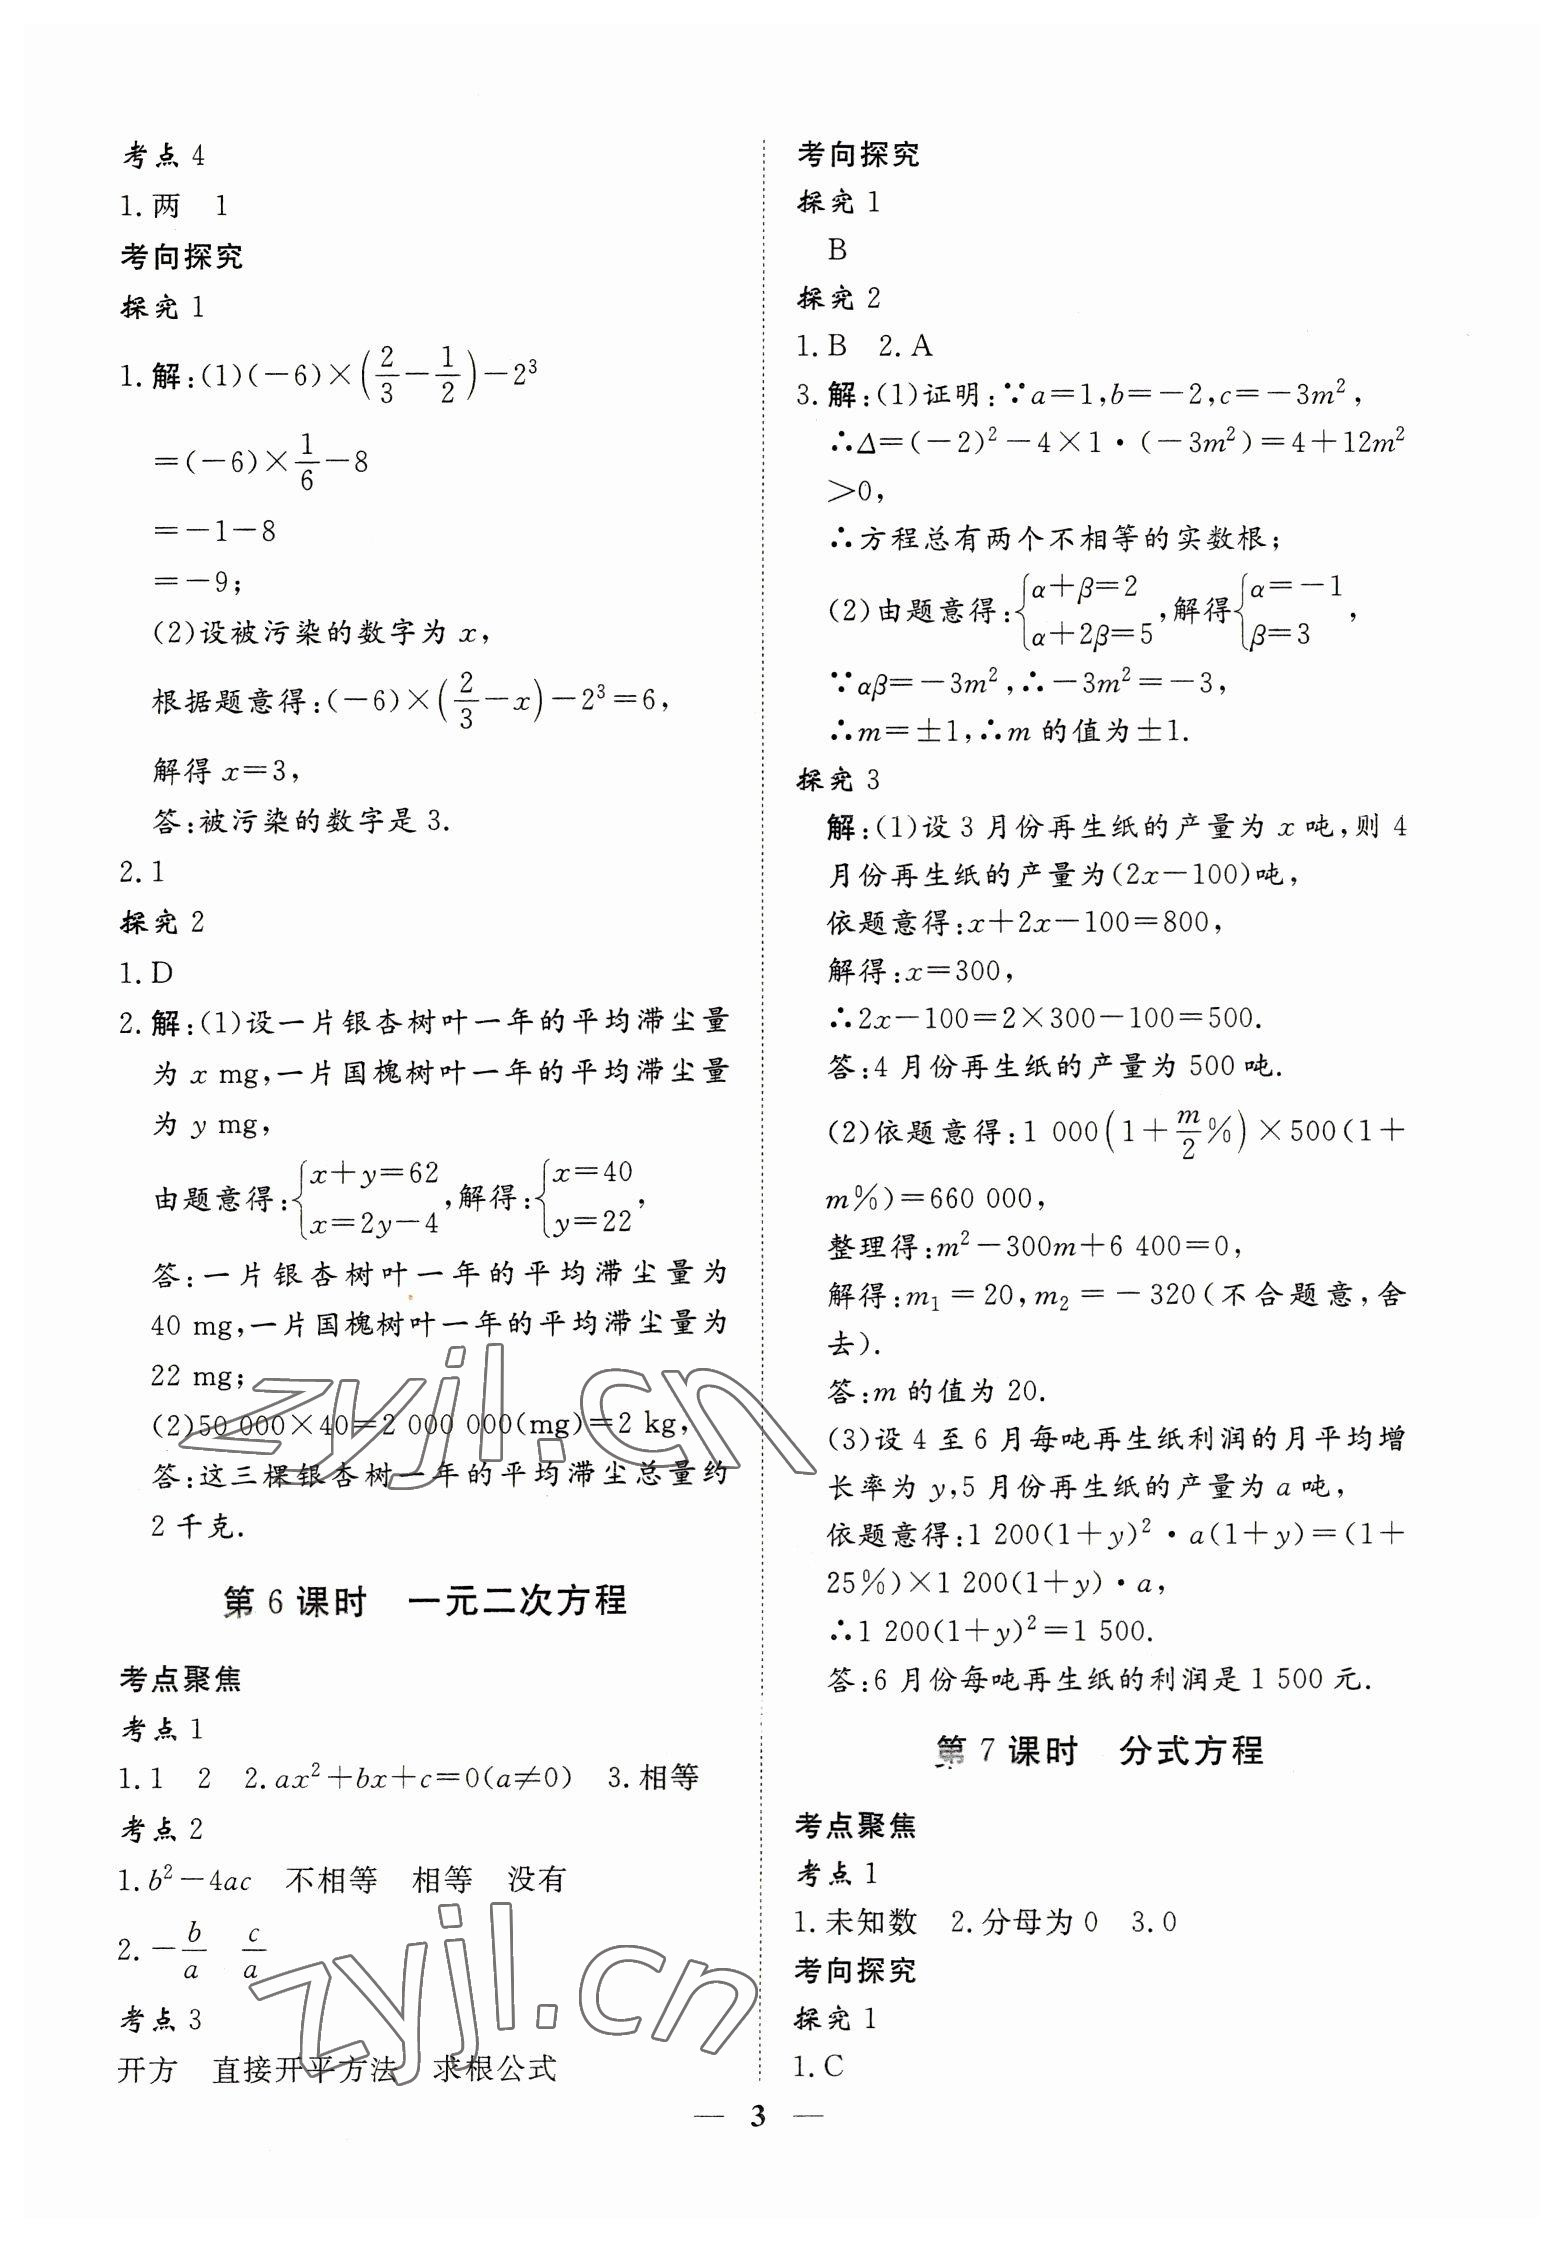 考点 4
1. 两　1
考向探究
探究 1
1. 解:(1)(−6)×(2/3−1/2)−2³
=(−6)×1/6−8
=−1−8
=−9;
(2)设被污染的数字为 x,
根据题意得:(−6)×(2/3−x)−2³=6,
解得 x=3,
答:被污染的数字是 3.
2. 1
探究 2
1. D
2. 解:(1)设一片银杏树叶一年的平均滞尘量
为 x mg,一片国槐树叶一年的平均滞尘量
为 y mg,
由题意得:{x+y=62 x=2y−4,解得:{x=40 y=22,
答:一片银杏树叶一年的平均滞尘量为
40 mg,一片国槐树叶一年的平均滞尘量为
22 mg;
(2)50 000×40=2 000 000(mg)=2 kg,
答:这三棵银杏树一年的平均滞尘总量约
2 千克.
第 6 课时　一元二次方程
考点聚焦
考点 1
1. 1　2　2. ax²+bx+c=0(a≠0)　3. 相等
考点 2
1. b²−4ac　不相等　相等　没有
2. −b/a　c/a
考点 3
开方　直接开平方法　求根公式
考向探究
探究 1
B
探究 2
1. B　2. A
3. 解:(1)证明:∵a=1,b=−2,c=−3m²,
∴Δ=(−2)²−4×1·(−3m²)=4+12m²
>0,
∴方程总有两个不相等的实数根;
(2)由题意得:{α+β=2 α+2β=5,解得{α=−1 β=3,
∵αβ=−3m²,∴−3m²=−3,
∴m=±1,∴m 的值为±1.
探究 3
解:(1)设 3 月份再生纸的产量为 x 吨,则 4
月份再生纸的产量为(2x−100)吨,
依题意得:x+2x−100=800,
解得:x=300,
∴2x−100=2×300−100=500.
答:4 月份再生纸的产量为 500 吨.
(2)依题意得:1 000(1+m/2%)×500(1+
m%)=660 000,
整理得:m²−300m+6 400=0,
解得:m₁=20,m₂=−320(不合题意,舍
去).
答:m 的值为 20.
(3)设 4 至 6 月每吨再生纸利润的月平均增
长率为 y,5 月份再生纸的产量为 a 吨,
依题意得:1 200(1+y)²·a(1+y)=(1+
25%)×1 200(1+y)·a,
∴1 200(1+y)²=1 500.
答:6 月份每吨再生纸的利润是 1 500 元.
第 7 课时　分式方程
考点聚焦
考点 1
1. 未知数　2. 分母为 0　3. 0
考向探究
探究 1
1. C
— 3 —
zyjl.cn
zyjl.cn